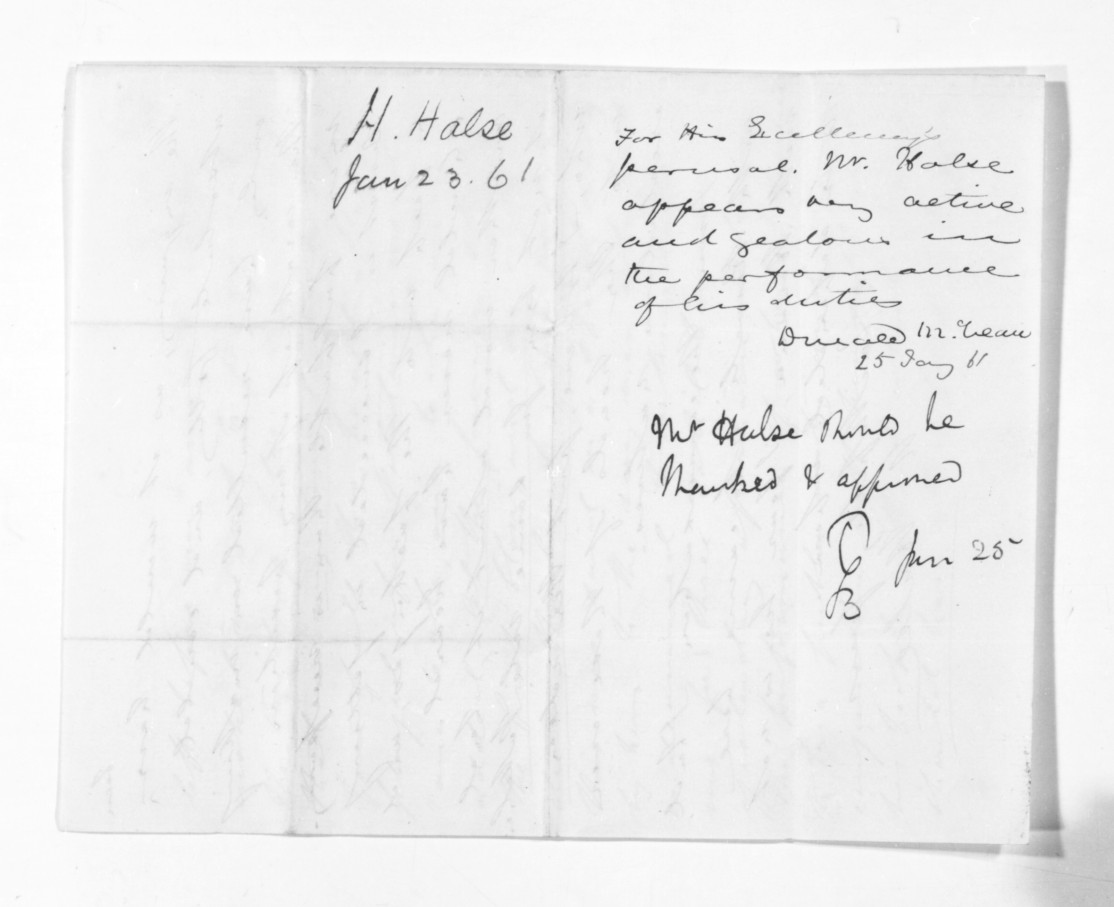 H. Halse
Jan 23. 61
For His Excellency's
perusal. Mr. Halse
appears very active
and zealous in
the performance
of his duties
Donald McLean
25 Jany 61
Mr Halse should be
thanked & approved
TGB Jan 25